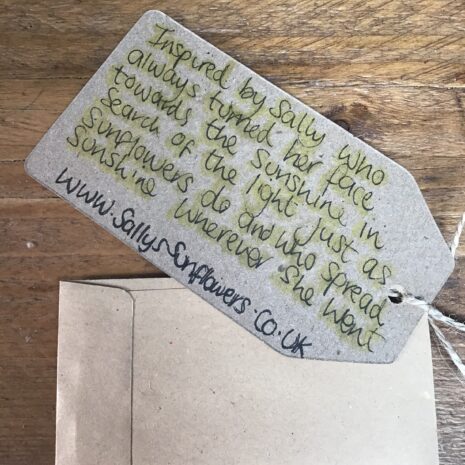 Inspired by Sally who
always turned her face
towards the sunshine in
search of the light just as
sunflowers do and who spread
sunshine wherever she went
www.sallys-sunflowers.co.uk